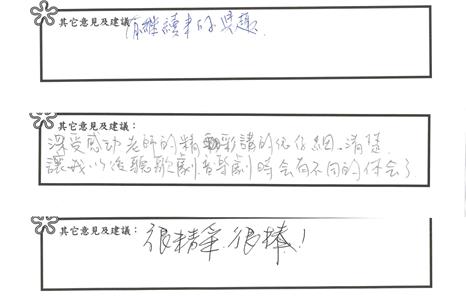 其它意見及建議：
有繼續來的興趣。
其它意見及建議：
深受感动老師的精彩講的很仔細、清楚
讓我以後聽歌劇音樂劇時会有不同的体会了
其它意見及建議：
很精彩、很棒！